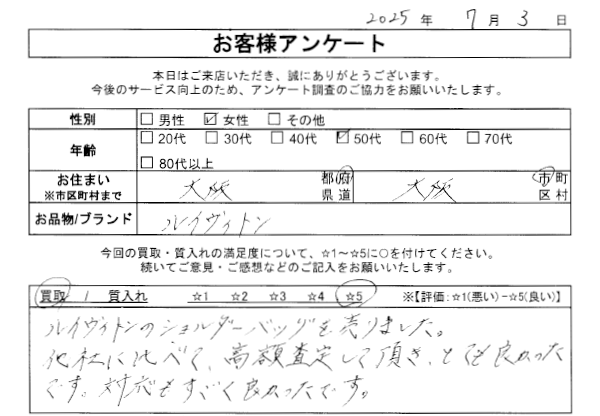 2025年 7月 3日
お客様アンケート
本日はご来店いただき、誠にありがとうございます。
今後のサービス向上のため、アンケート調査のご協力をお願いいたします。
性別 □ 男性 ☑ 女性 □ その他
年齢 □ 20代 □ 30代 □ 40代 ☑ 50代 □ 60代 □ 70代
□ 80代以上
お住まい 大阪 都府 大阪 市町
※市区町村まで 県道 区村
お品物/ブランド ルイヴィトン
今回の買取・質入れの満足度について、☆1~☆5に○を付けてください。
続いてご意見・ご感想などのご記入をお願いいたします。
買取 / 質入れ ☆1 ☆2 ☆3 ☆4 ☆5 ※【評価:☆1(悪い)-☆5(良い)】
ルイヴィトンのショルダーバッグを売りました。
他社に比べて、高額査定して頂き、とても良かった
です。対応もすごく良かったです。